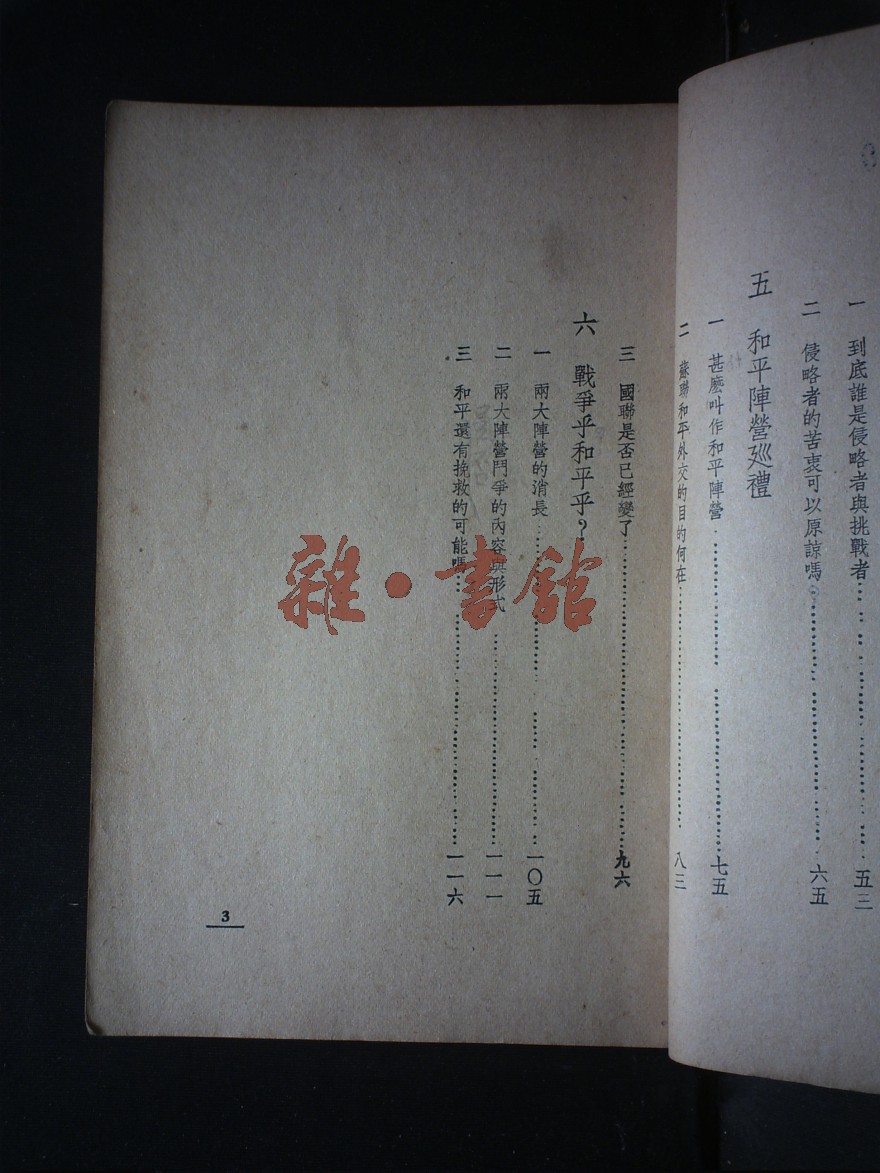 一　到底誰是侵略者與挑戰者……五三
二　侵略者的苦衷可以原諒嗎……六五
五　和平陣營廵禮
一　甚麽叫作和平陣營……七五
二　蘇聯和平外交的目的何在……八三
三　國聯是否已經變了……九六
六　戰爭乎和平乎？
一　兩大陣營的消長……一〇五
二　兩大陣營鬥爭的內容與形式……一一一
三　和平還有挽救的可能嗎……一一六
3
雜·書館